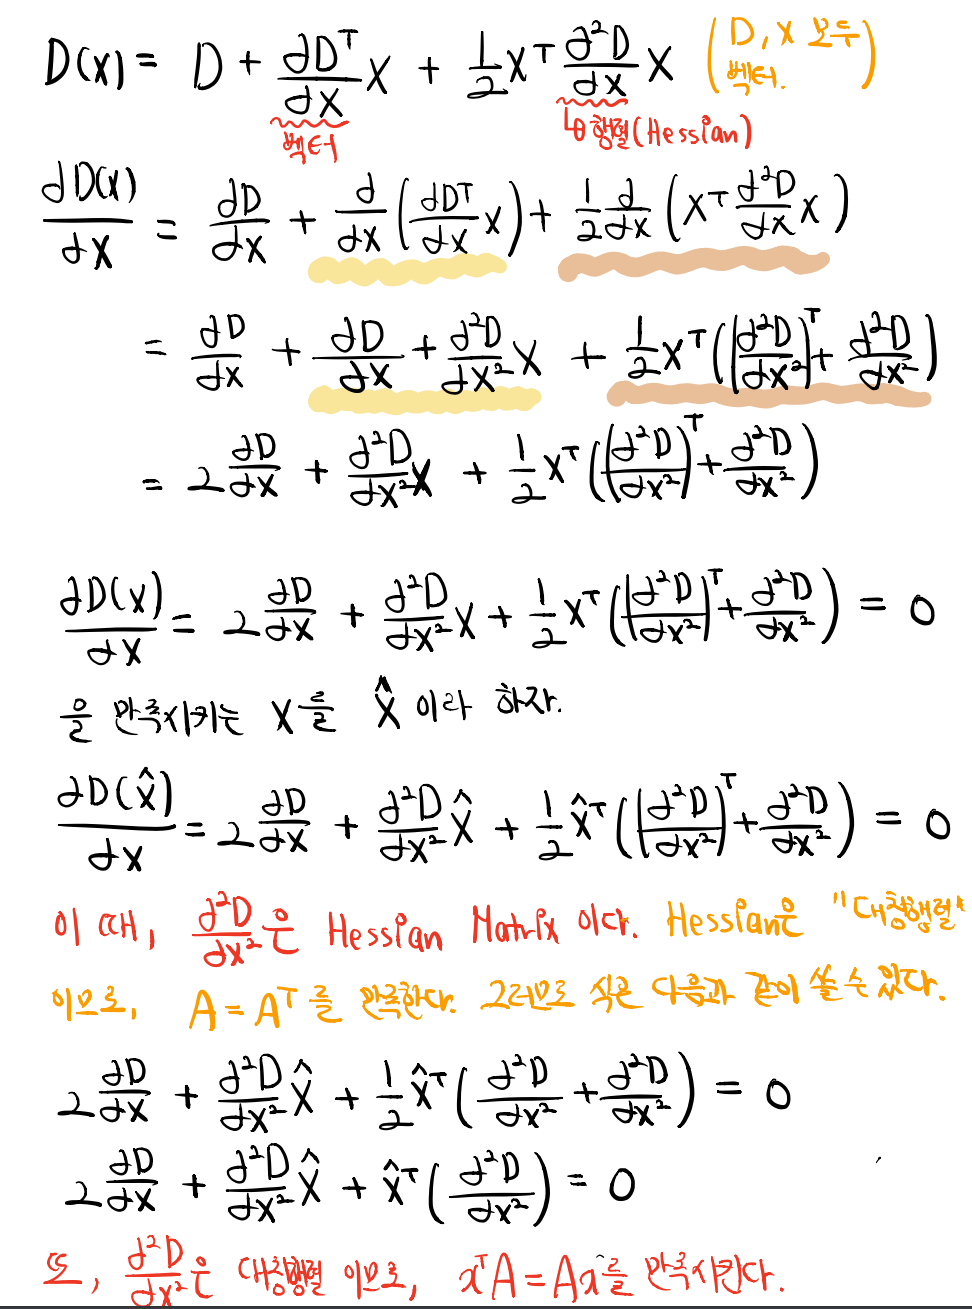 D(x) = D + ∂Dᵀ/∂x x + 1/2 xᵀ ∂²D/∂x x (D, x 모두 벡터.)
벡터 ↳ 행렬(Hessian)
∂D(x)/∂x = ∂D/∂x + ∂/∂x (∂Dᵀ/∂x x) + 1/2 ∂/∂x (xᵀ ∂²D/∂x x)
= ∂D/∂x + ∂D/∂x + ∂²D/∂x² x + 1/2 xᵀ((∂²D/∂x²)ᵀ + ∂²D/∂x²)
= 2 ∂D/∂x + ∂²D/∂x² x + 1/2 xᵀ((∂²D/∂x²)ᵀ + ∂²D/∂x²)
∂D(x)/∂x = 2 ∂D/∂x + ∂²D/∂x² x + 1/2 xᵀ((∂²D/∂x²)ᵀ + ∂²D/∂x²) = 0
을 만족시키는 x를 x̂ 이라 하자.
∂D(x̂)/∂x = 2 ∂D/∂x + ∂²D/∂x² x̂ + 1/2 x̂ᵀ((∂²D/∂x²)ᵀ + ∂²D/∂x²) = 0
이 때, ∂²D/∂x² 은 Hessian Matrix 이다. Hessian은 "대칭행렬"
이므로, A = Aᵀ 를 만족한다. 그러므로 식은 다음과 같이 쓸 수 있다.
2 ∂D/∂x + ∂²D/∂x² x̂ + 1/2 x̂ᵀ(∂²D/∂x² + ∂²D/∂x²) = 0
2 ∂D/∂x + ∂²D/∂x² x̂ + x̂ᵀ(∂²D/∂x²) = 0
또, ∂²D/∂x² 은 대칭행렬 이므로, xᵀA = Ax를 만족시킨다.